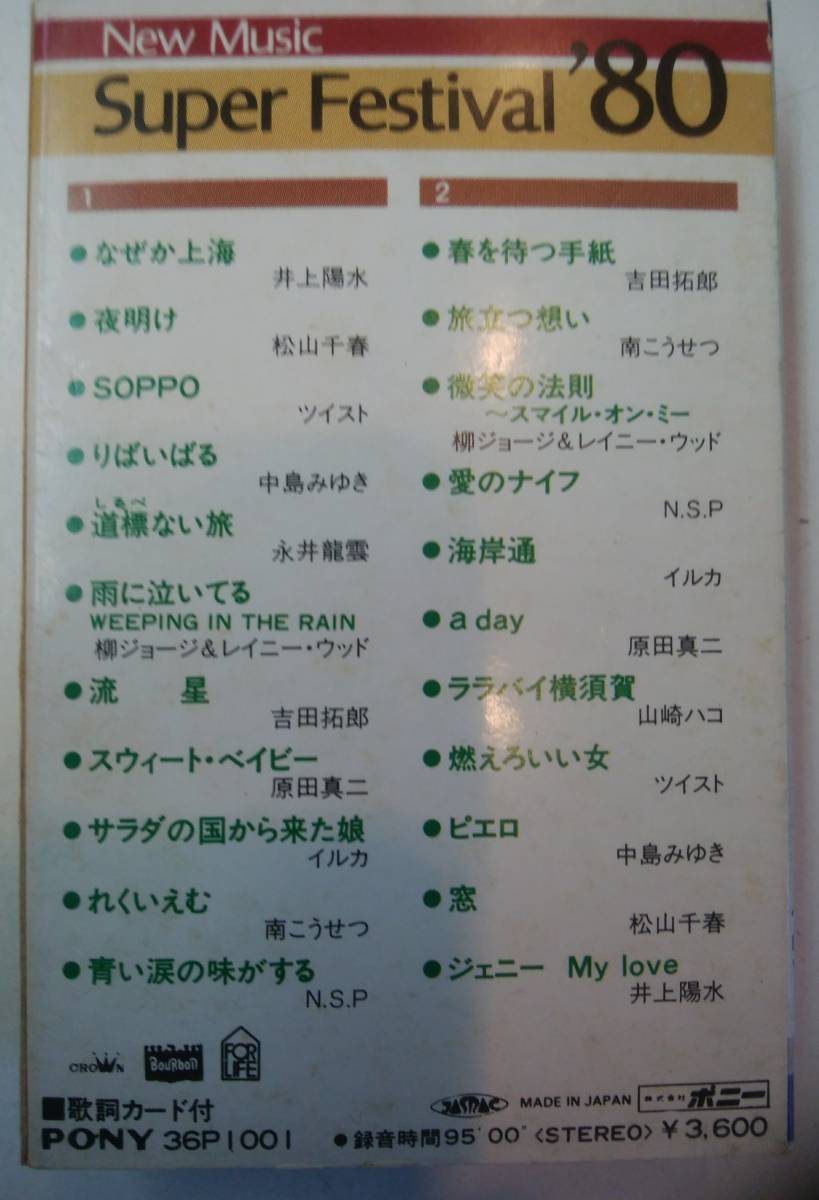 New Music
Super Festival '80
1
●なぜか上海
井上陽水
●夜明け
松山千春
●SOPPO
ツイスト
●りばいばる
中島みゆき
しるべ
●道標ない旅
永井龍雲
●雨に泣いてる
WEEPING IN THE RAIN
柳ジョージ&レイニー・ウッド
●流 星
吉田拓郎
●スウィート・ベイビー
原田真二
●サラダの国から来た娘
イルカ
●れくいえむ
南こうせつ
●青い涙の味がする
N.S.P
2
●春を待つ手紙
吉田拓郎
●旅立つ想い
南こうせつ
●微笑の法則
〜スマイル・オン・ミー
柳ジョージ&レイニー・ウッド
●愛のナイフ
N.S.P
●海岸通
イルカ
●a day
原田真二
●ララバイ横須賀
山崎ハコ
●燃えろいい女
ツイスト
●ピエロ
中島みゆき
●窓
松山千春
●ジェニー My love
井上陽水
CROWN
BOURBON
FOR LIFE
■歌詞カード付
JASRAC
MADE IN JAPAN
株式会社ポニー
PONY 36P1001
●録音時間95'00" <STEREO> ¥3,600